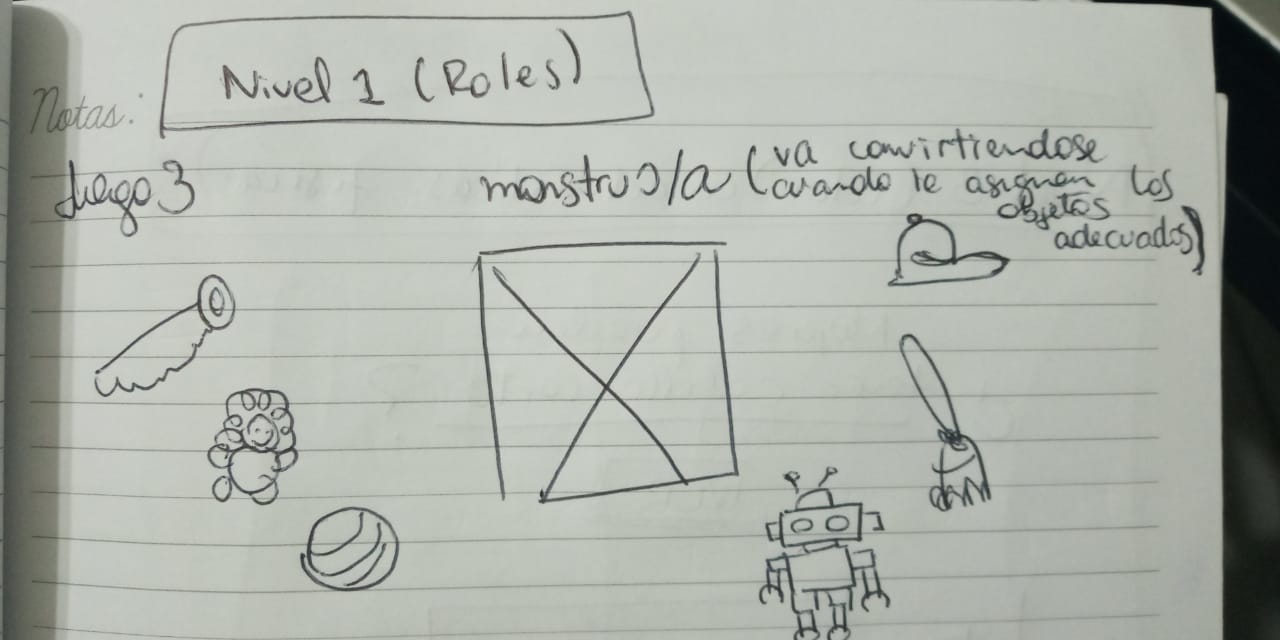 Nivel 1 (Roles)
Notas:
Juego 3
monstruo/a (va convirtiendose
cuando le asignan los
objetos
adecuados)